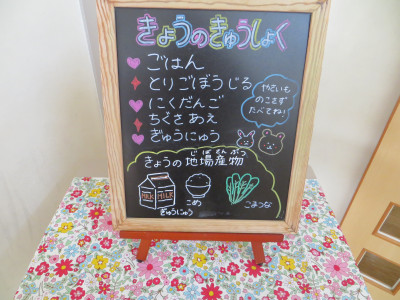 きょうのきゅうしょく
ごはん
とりごぼうじる
にくだんご
ちくさあえ
ぎゅうにゅう
やさいも
のこさず
たべてね!
きょうの地場産物
じばさんぶつ
MILK MILK
ぎゅうにゅう
こめ
こまつな